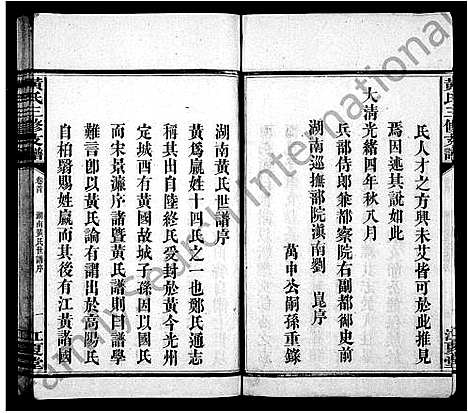 黃氏三修支譜
氏人才之方興未艾皆可於此推見
焉因述其說如此
大清光緒四年秋八月
兵部侍郎兼都察院右副都御史前
湖南巡撫部院滇南劉 崐序
萬申公嗣孫重錄
江夏堂
湖南黃氏世譜序
黃爲嬴姓十四氏之一也鄭氏通志
稱其出自陸終氏受封於黃今光州
定城西有黃國故城子孫因以國氏
而宋景濂序譜暨黃氏譜則曰譜學
難言卽以黃氏論有謂出於高陽氏
自柏翳賜姓嬴而其後有江黃諸國
黃氏三修支譜
卷首
湖南黃氏世譜序
一
江夏堂
FamilySearch International